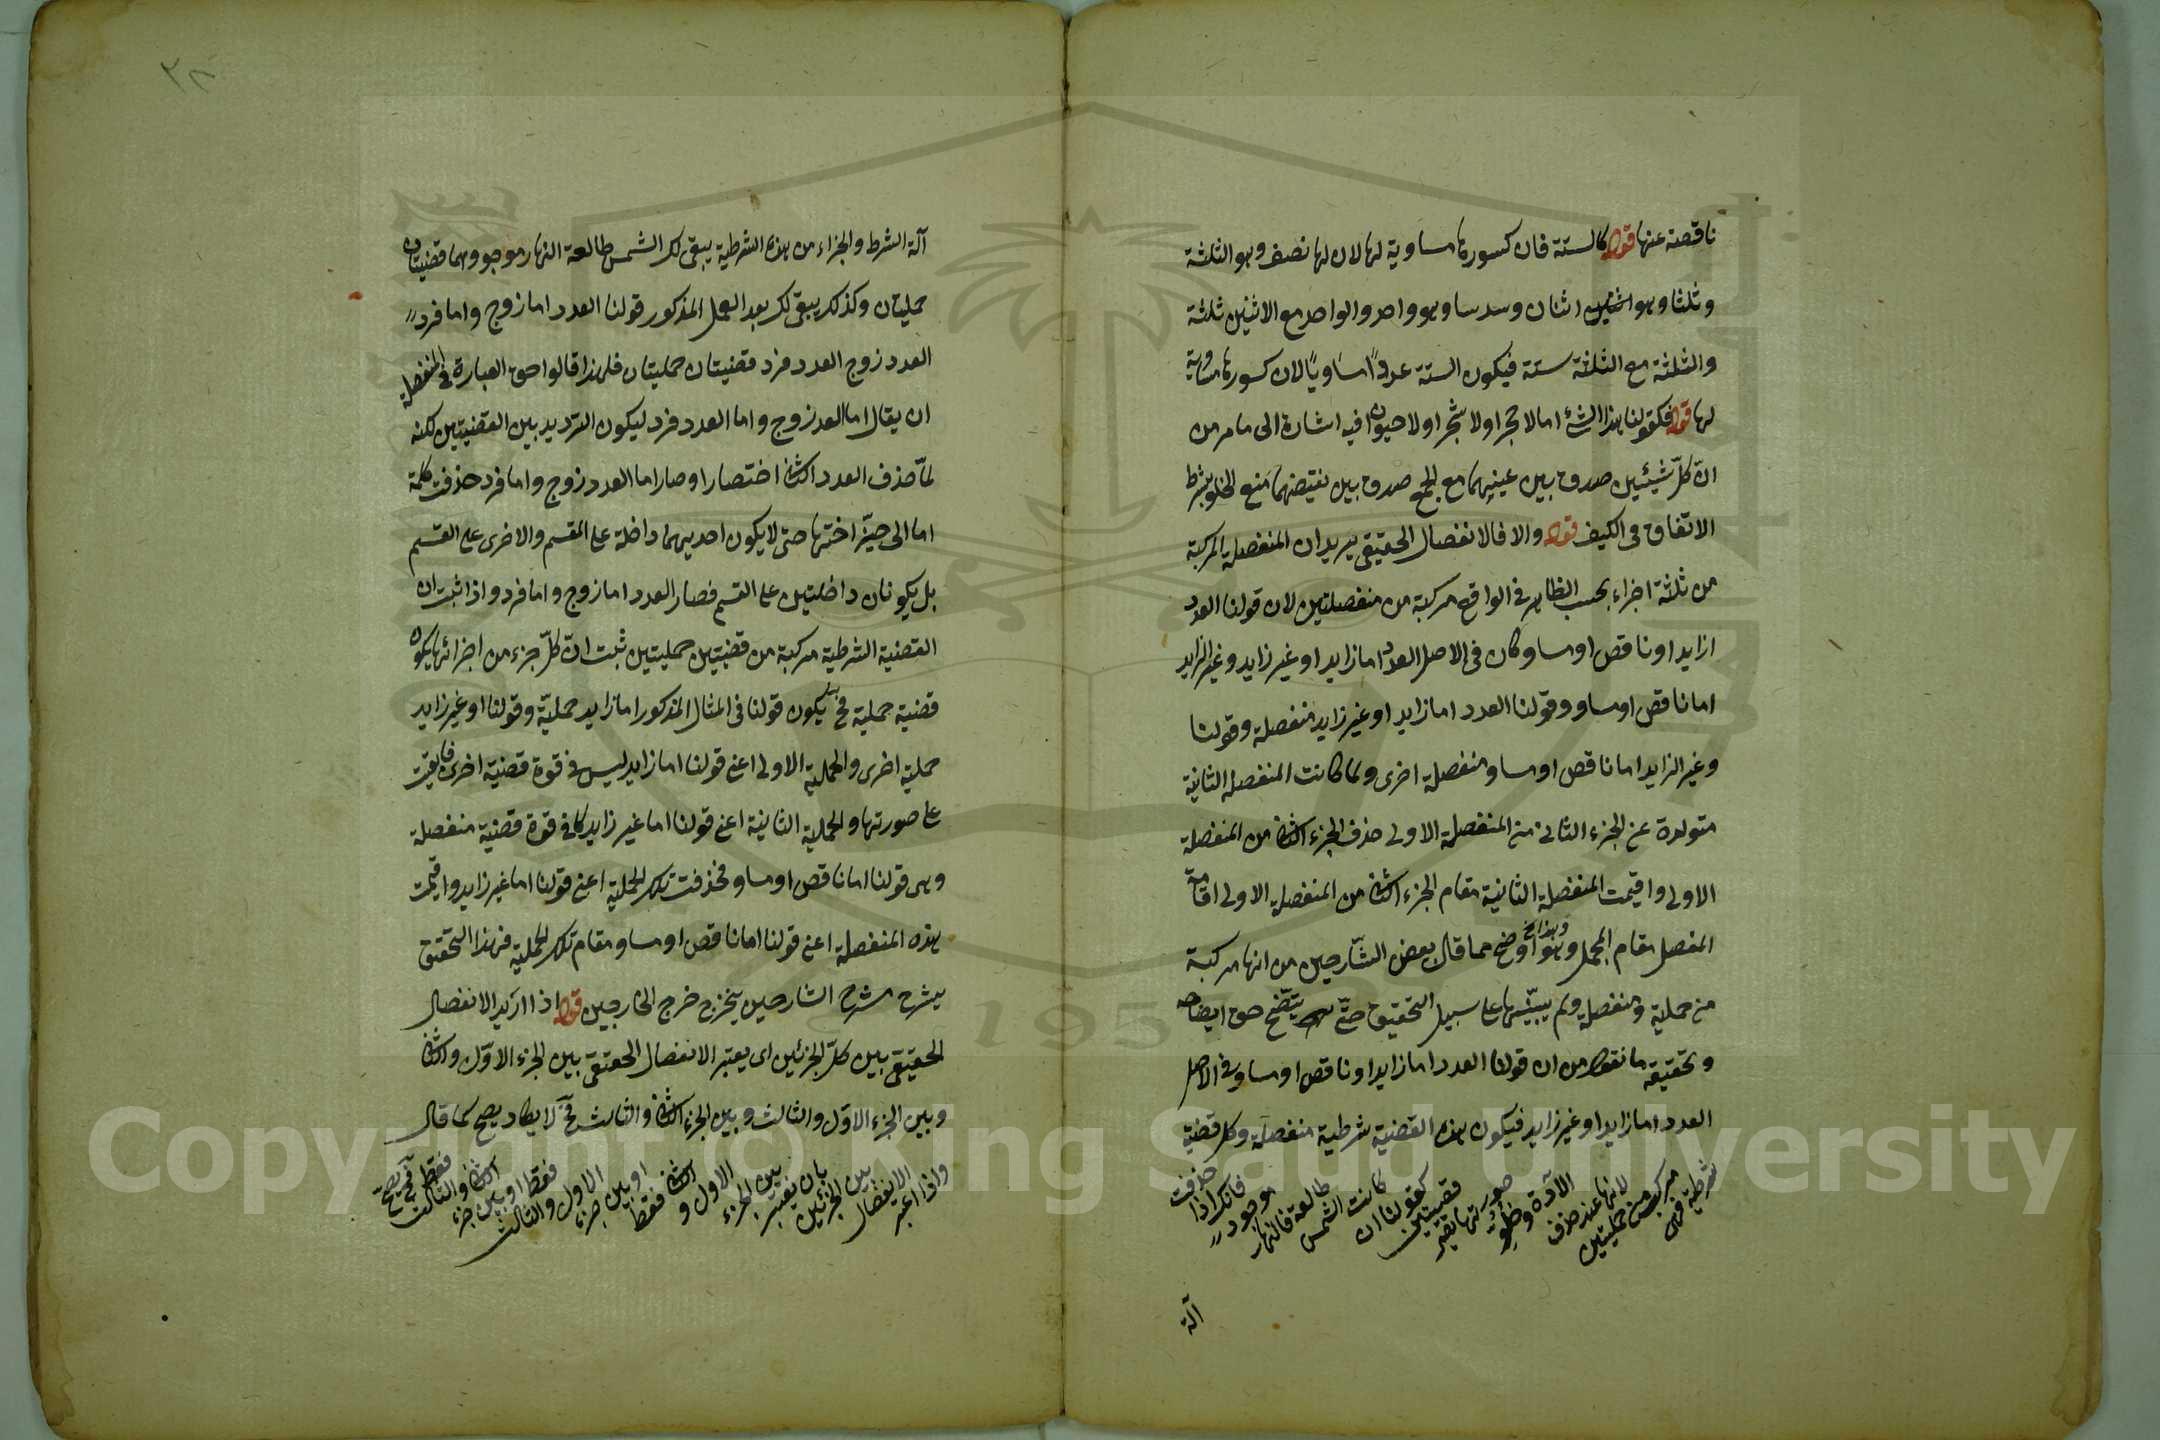 ناقصة عنها قوله كالستة فان كسورها مساوية لها لان لها نصف وهو الثلثة
وثلثا وهو اثنان وسدسا وهو واحد والواحد مع الاثنين ثلثة
والثلثة مع الثلثة ستة فيكون الستة عددا مساويًا لان كسورها مساوية
لها قوله فكقولنا هذا الشئ اما لا حجر او لا شجر او لا حيوان فيه اشارة الى ما مر من
انّ كلّ شيئين صدق بين عينيهما مع الجمع صدق بين نقيضهما منع الخلو بشرط
الاتفاق فى الكيف قوله والا فالانفصال الحقيقى يريد ان المنفصلة المركبة
من ثلثة اجزاء بحسب الظاهر فى الواقع مركبة من منفصلتين لان قولنا العدد
ازايد او ناقص او مساو كان فى الاصل العدد اما زايد او غير زايد وغير الزايد
اما ناقص او مساو وقولنا العدد اما زايد او غير زايد منفصلة وقولنا
وغير الزايد اما ناقص او مساو منفصلة اخرى ولما كانت المنفصلة الثانية
متولدة عن الجزء الثانى من المنفصلة الاولى حذف الجزء الثانى من المنفصلة
الاولى واقيمت المنفصلة الثانية مقام الجزء الثانى من المنفصلة الاولى اقامة
المفصل مقام المجمل وهو اوضح مما قال بعض الشّارحين من انها مركبة
وهذا
من حملية ومنفصلة ولم يبيّنها على سبيل التحقيق حتّى يتّضح حق ايضاحه
وتحقيقه ما نقول من ان قولنا العدد اما زايد او ناقص او مساو فى الاصل
العدد اما زايد او غير زايد فيكون هذه القضية شرطية منفصلة وكل قضية
شرطية فهى مركبة من حمليتين لانها عند حذف الآدة صورتها يبقى قضيتين كقولنا ان كانت الشمس طالعة فالنهار موجود فانك اذا حذفت
آلة
٣٨
آلة الشرط والجزاء من هذه الشرطية يبقى لك الشمس طالعة النهار موجود وهما قضيتان
حمليتان وكذلك يبقى لك بعد العمل المذكور قولنا العدد اما زوج واما فرد
العدد زوج العدد فرد قضيتان حمليتان فلهذا قالوا حق العبارة فى المنفصلة
ان يقال اما العدد زوج واما العدد فرد ليكون الترديد بين القضيتين لكنه
لمّا حذف العدد الثانى اختصارا وصار اما العدد زوج واما فرد حذفت كلمة
اما الى حيّز اختها حتى لا يكون احديهما داخلة على المقسم والاخرى على القسم
بل يكونان داخلتين على القسم فصار العدد اما زوج واما فرد واذا ثبت ان
القضية الشرطية مركبة من قضيتين حمليتين ثبت انّ كلّ جزء من اجزائها يكون
قضية حملية فح يكون قولنا فى المثال المذكور اما زايد حمليّة وقولنا او غير زايد
حملية اخرى والحملية الاولى اعنى قولنا اما زايد ليس فى قوة قضية اخرى فابقيت
على صورتها والحملية الثانية اعنى قولنا اما غير زايد كان فى قوة قضية منفصلة
وهى قولنا اما ناقص او مساو فحذفت تلك الحملية اعنى قولنا اما غير زايد واقيمت
هذه المنفصلة اعنى قولنا اما ناقص او مساو مقام تلك الحملية فهذا التحقيق
يشرح شرح الشارحين يخرج خرج الخارجين قوله اذا اريد الانفصال
الحقيقى بين كلّ الجزئين اى يعتبر الانفصال الحقيقى بين الجزء الاوّل والثانى
وبين الجزء الاوّل والثالث وبين الجزء الثانى والثالث فح لا يكاد يصح كما قال
واذا اعتبر الانفصال بين الجزئين بان يعتبر بين الجزء الاول والثانى فقط او بين جزء الاول والثالث فقط او بين جزء الثانى والثالث فقط فح يصحّ
Copyright © King Saud University
195